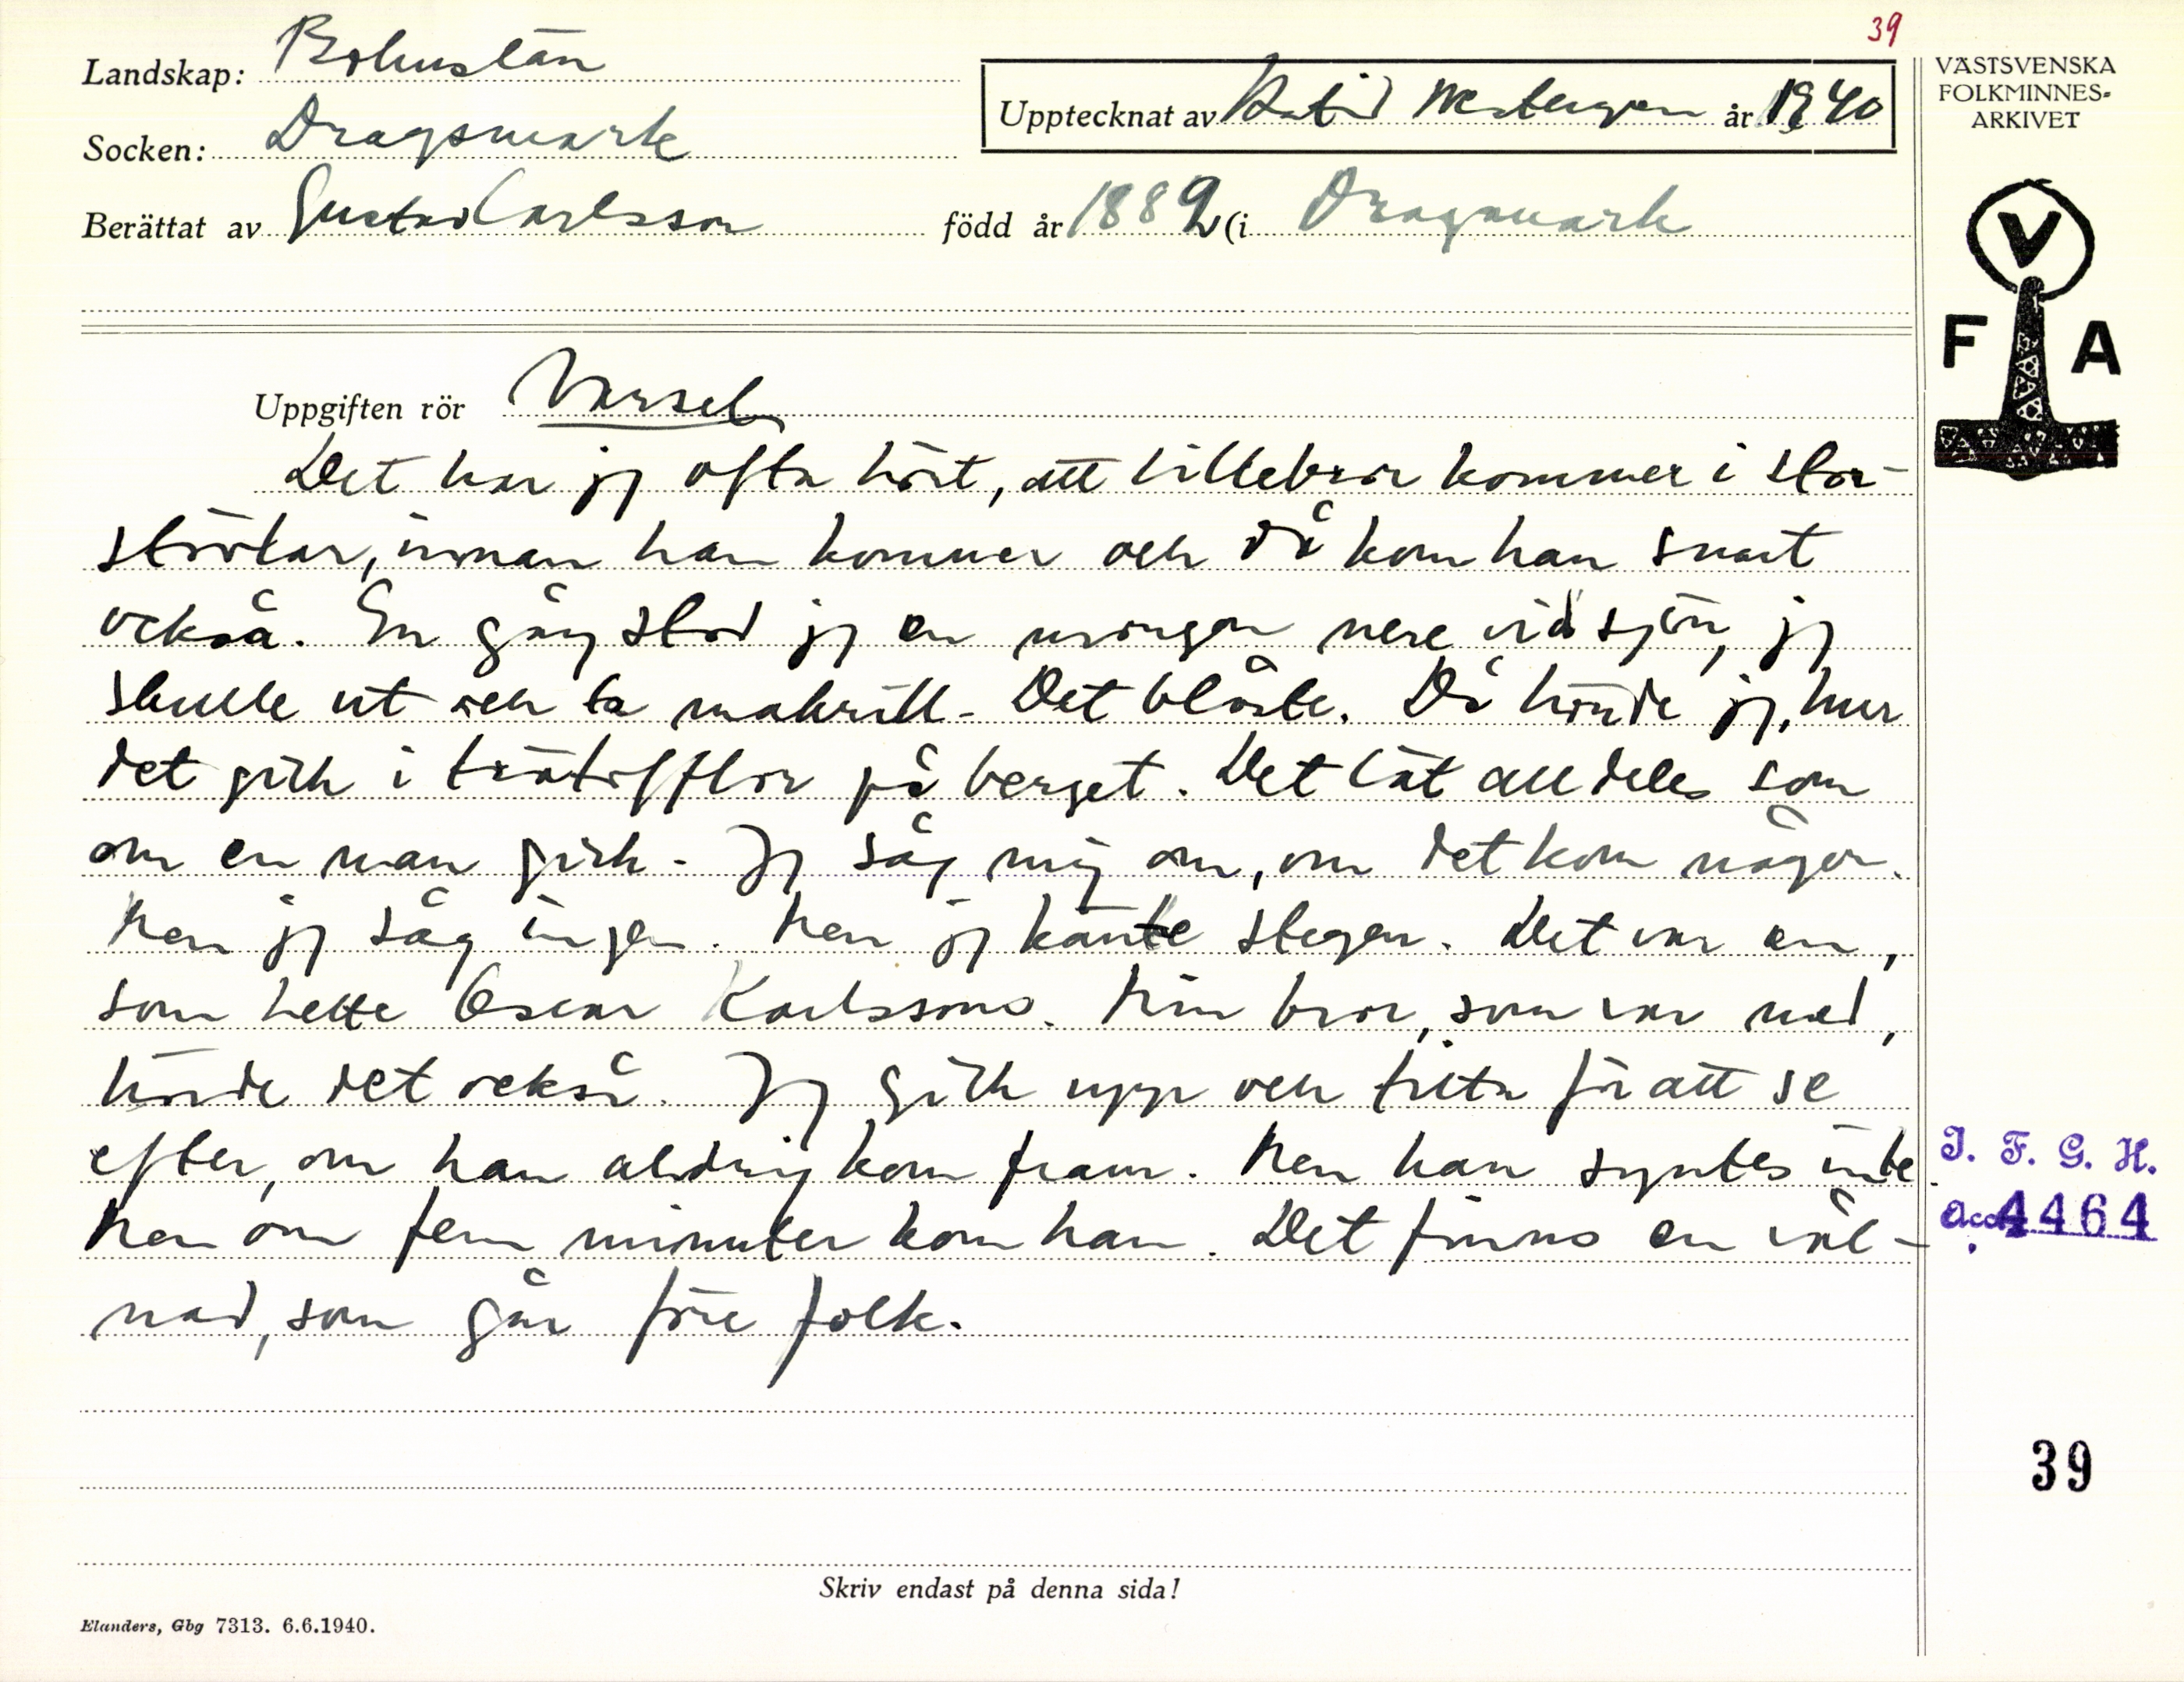 39
Landskap: Bohuslän
Upptecknat av Katid Westergren år 1940
Socken: Dragsmark
Berättat av Gustav Carlsson född år 1882 i Dragsmark
VÄSTSVENSKA
FOLKMINNES-
ARKIVET
V
F A
Uppgiften rör Varsel
Det har jg ofta hört, att lillebror kommer i stor-
stövlar, innan han kommer och då kom han snart
också. En gång stod jg en morgon nere vid sjön, jg
skulle ut och ta makrill. Det blåste. Då hörde jg, hur
det gick i trätofflor på berget. Det lät alldeles som
om en man gick. Jg såg mig om, om det kom någon.
Men jg såg ingen. Men jg kände stegen. Det var en,
som hette Oscar Karlssons. Min bror, som var med,
hörde det också. Jg gick upp och titta för att se
efter, om han aldrig kom fram. Men han syntes inte.
Men om fem minuter kom han. Det finns en vål-
nad, som går före folk.
I. F. G. H.
Acc. 4464
39
Skriv endast på denna sida!
Elanders, Gbg 7313. 6.6.1940.